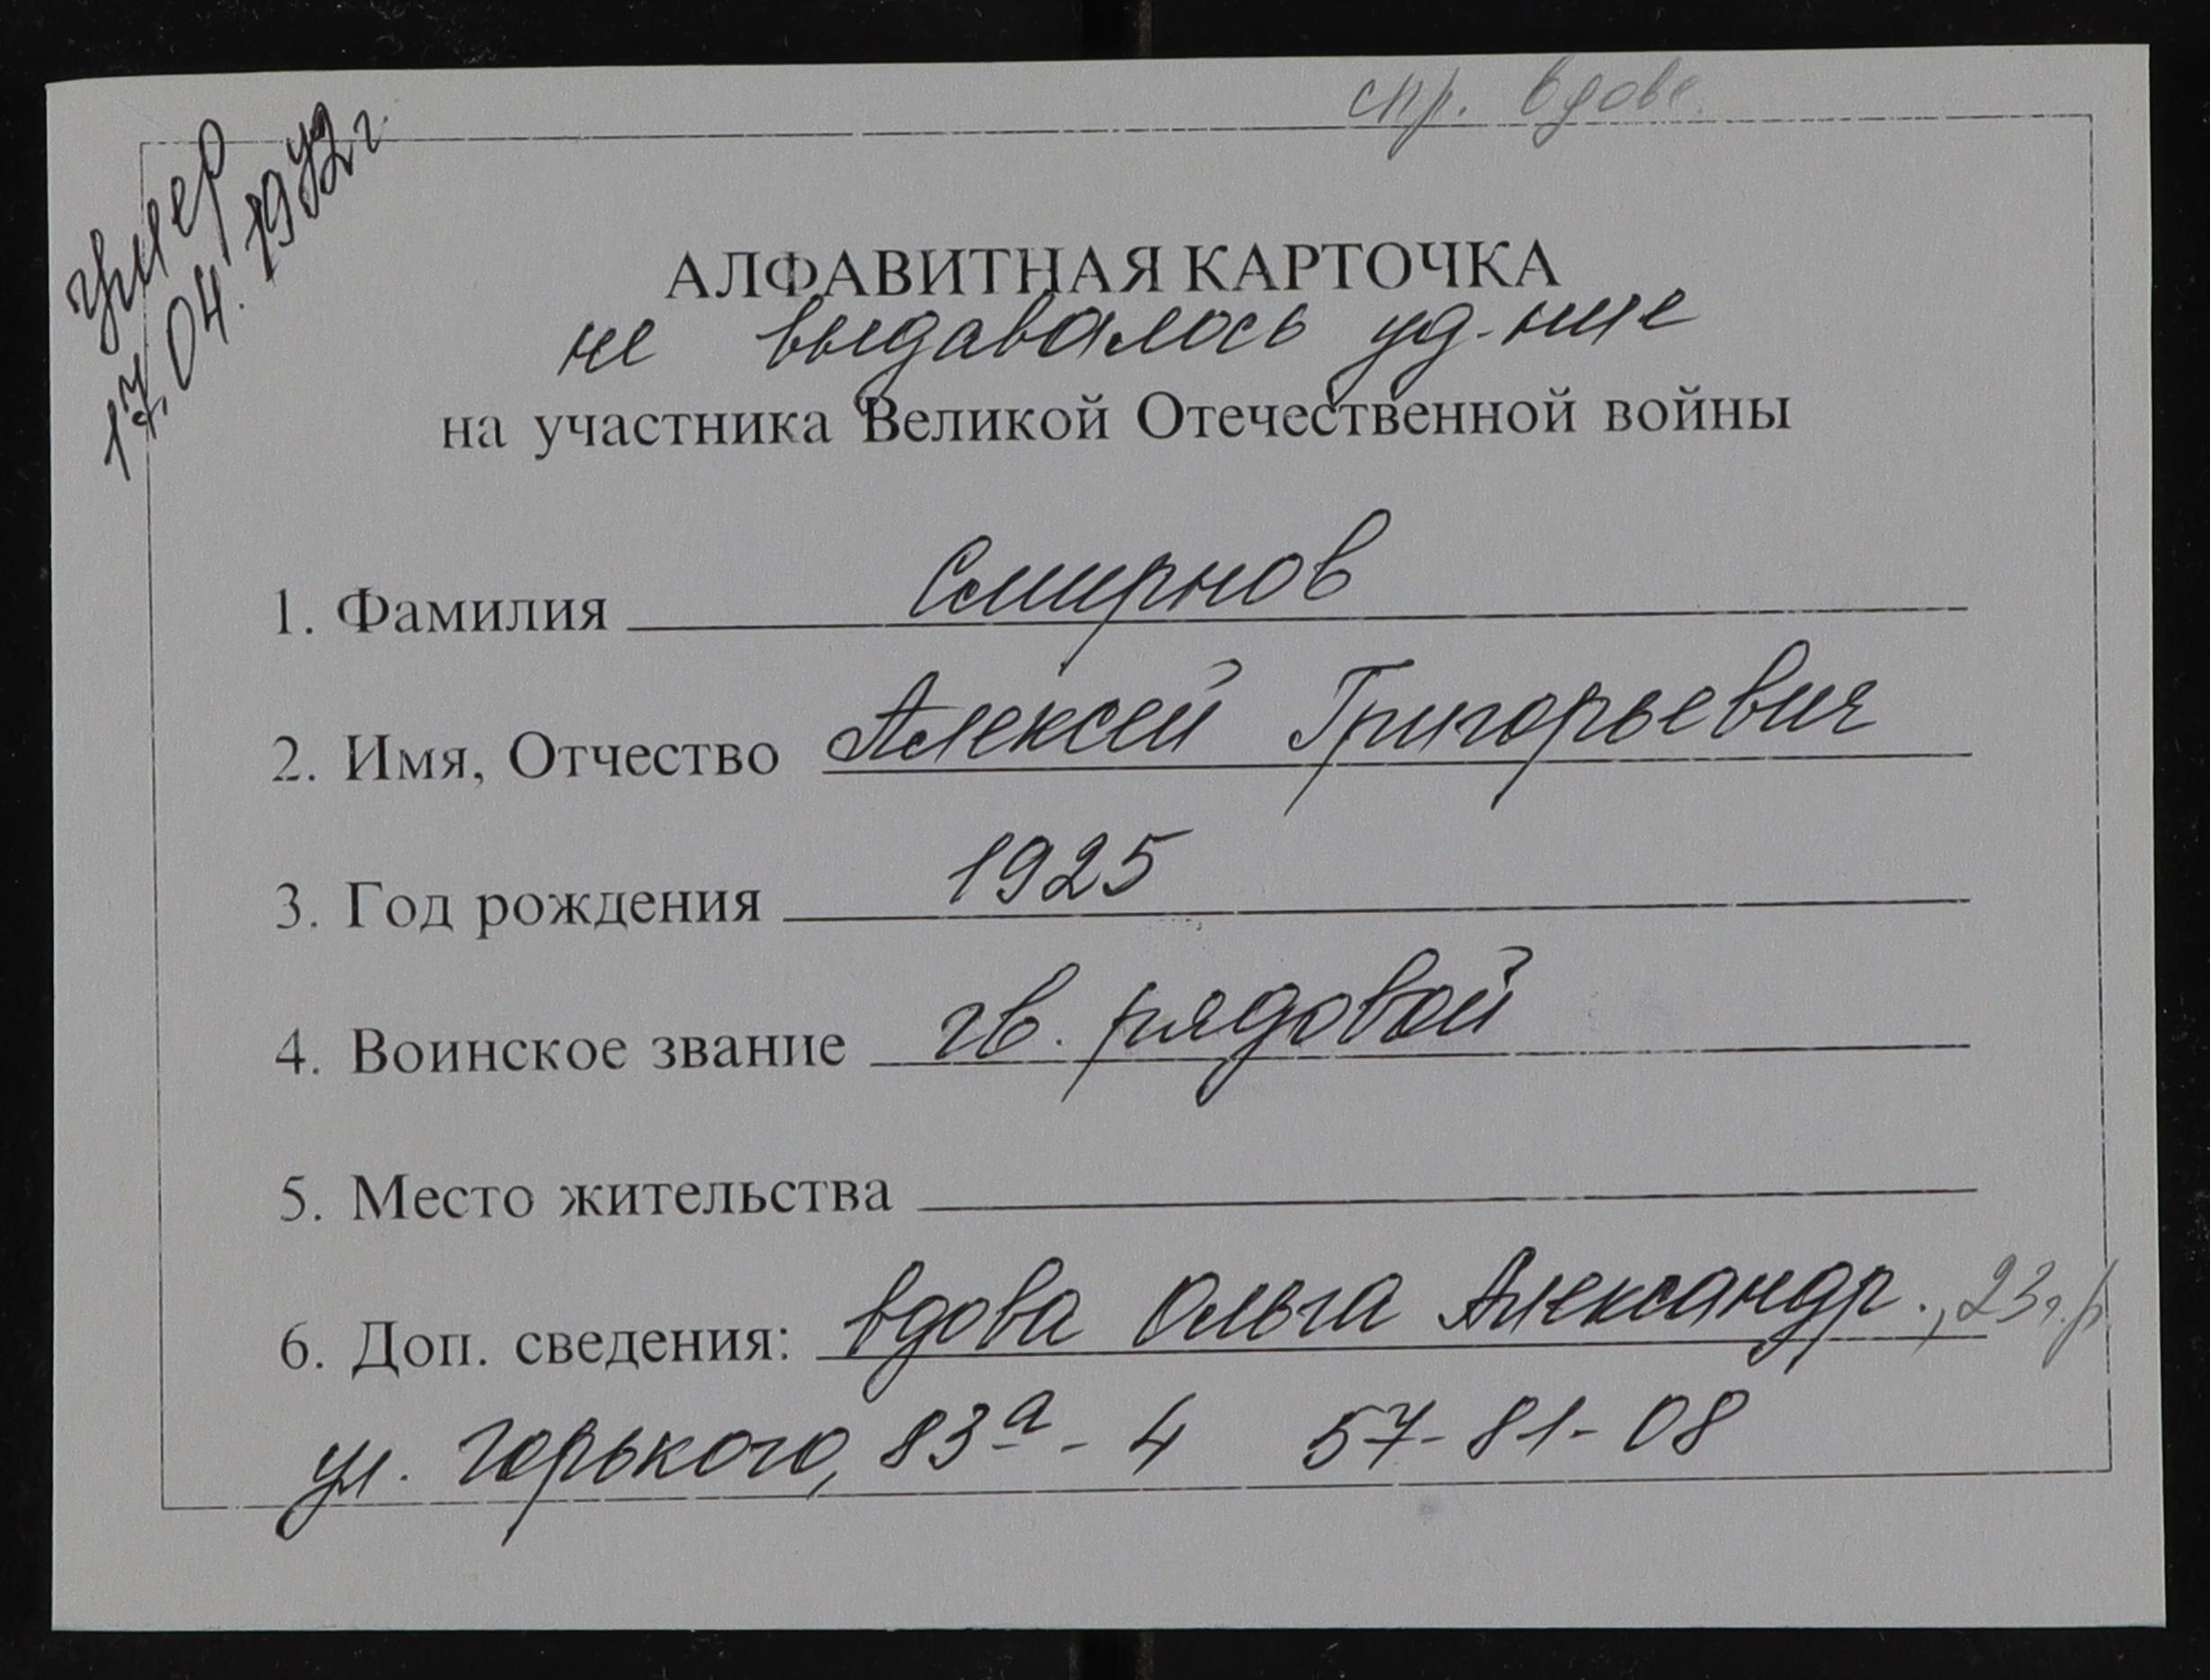 спр. вдове
умер
17.04.1972 г.
АЛФАВИТНАЯ КАРТОЧКА
не выдавалось уд-ние
на участника Великой Отечественной войны
1. Фамилия Смирнов
2. Имя, Отчество Алексей Григорьевич
3. Год рождения 1925
4. Воинское звание гв. рядовой
5. Место жительства
6. Доп. сведения: вдова Ольга Александр., 23 г.р
ул. Горького, 83а - 4 57-81-08